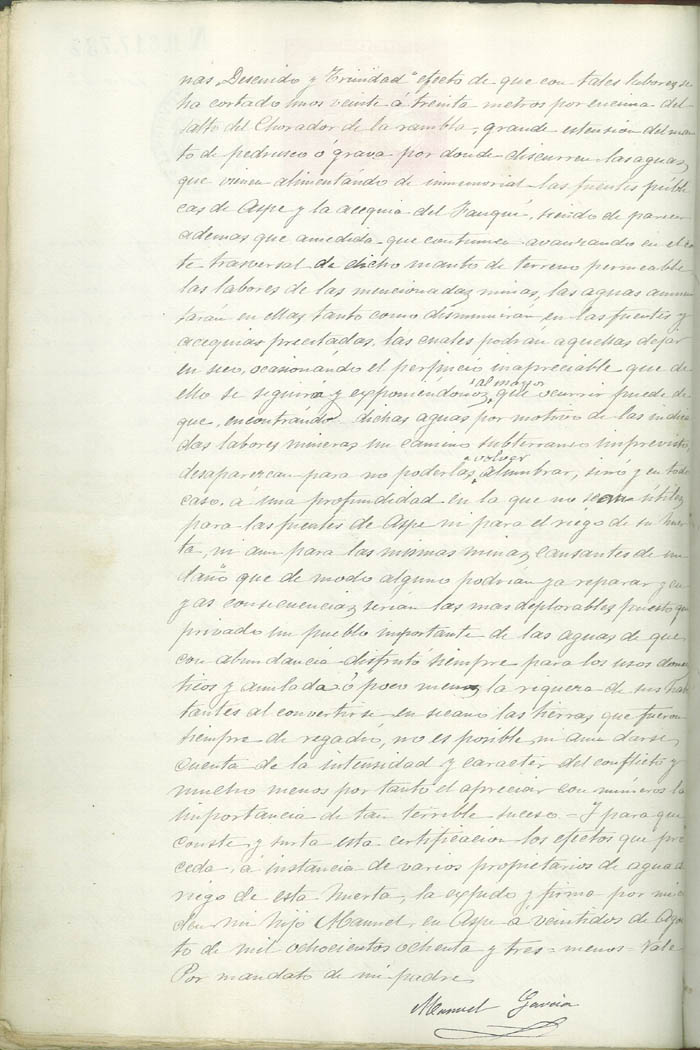 nas, Descuido y Trinidad" efecto de que con tales labores se
ha cortado unos veinte á treinta metros por encima del
salto del Chorador de la rambla, grande estension del man
to de pedrusco ó grava por donde discurren las aguas,
que vienen alimentándo de inmemorial las fuentes públi
cas de Aspe y la acequia del Fauquí, siendo de parecer
ademas que amedida que continuen avanzando en el cor
te trasversal de dicho manto de terreno permeable
las labores de las mencionadas minas, las aguas aumen
tarán en ellas tanto como disminuirán en las fuentes y
acequias precitadas, las cuales podrán aquellas dejar
en seco, ocasionándo el perjuicio inapreciable que de
ello se seguirá y exponiéndonos
al mayor
que ocurrir puede de
que, encontrándo dichas aguas por motivo de las indica
das labores mineras un camino subterraneo imprevisto,
desaparezcan para no poderlas
volver
alumbrar, sinó y en todo
caso, a una profundidad en la que no sean útiles
para las fuentes de Aspe ni para el riego de su huer
ta, ni aun para las mismas minas, causantes de un
daño que de modo alguno podrían ya reparar y cu
yas consecuencias, serian las mas deplorables puesto que
privado un pueblo importante de las aguas de que
con abundancia disfrutó siempre para los usos domes
ticos y anulada ó poco menos, la riqueza de sus habi
tantes al convertirse en secano las tierras que fueron
siempre de regadio, no es posible, ni aun darse,
cuenta de la intensidad y caracter del conflicto y
mucho menos por tanto el apreciar con números la
importancia de tan terrible suceso.= Y para que
conste, y surta esta certificacion los efectos que pro
ceda, á instancia de varios propietarios de agua de
riego de esta huerta, la expido y firma por mi
mi hijo Manuel, en Aspe á veintidos de Agos
to de mil ochocientos ochenta y tres= menos= Vale
Por mandato de mi padre,
Manuel Garcia